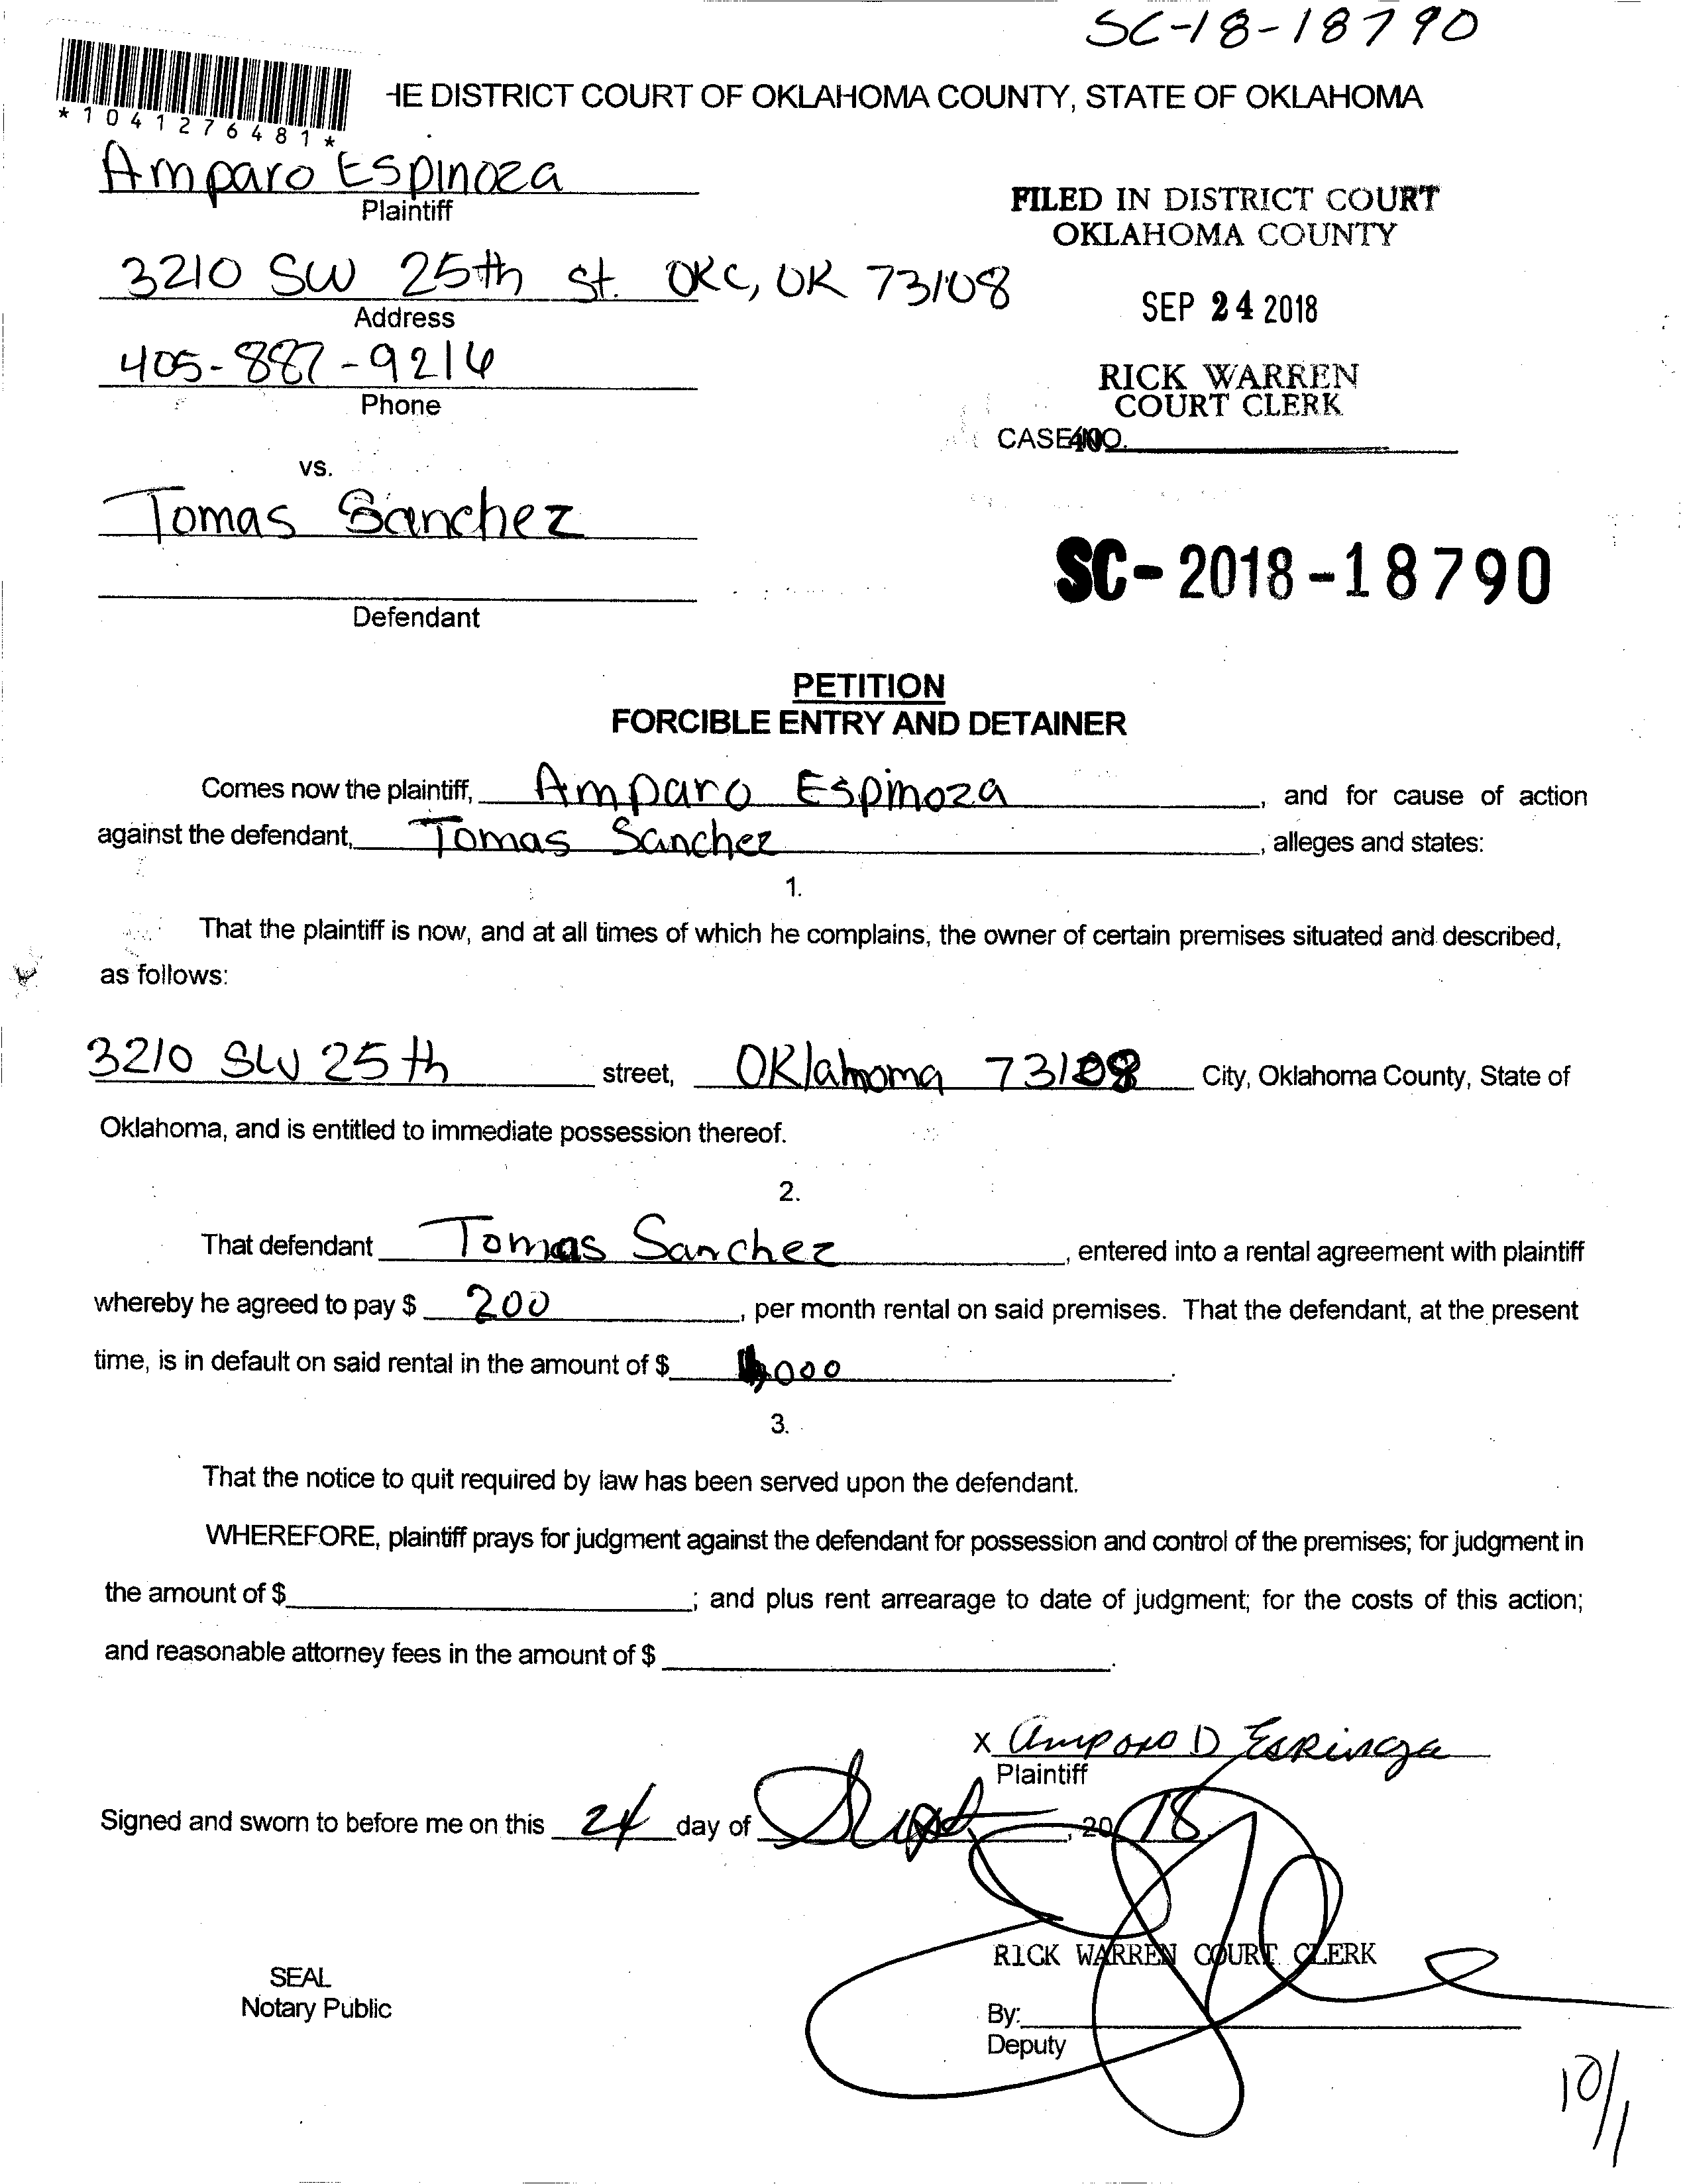 SC-18-18790
*1041276481*
HE DISTRICT COURT OF OKLAHOMA COUNTY, STATE OF OKLAHOMA
Amparo Espinoza
Plaintiff
FILED IN DISTRICT COURT
OKLAHOMA COUNTY
3210 SW 25th St. OKC, OK 73108
Address
SEP 24 2018
405-887-9216
Phone
RICK WARREN
COURT CLERK
CASE NO.
vs.
Tomas Sanchez
SC-2018-18790
Defendant
PETITION
FORCIBLE ENTRY AND DETAINER
Comes now the plaintiff, Amparo Espinoza, and for cause of action
against the defendant, Tomas Sanchez, alleges and states:
1.
That the plaintiff is now, and at all times of which he complains, the owner of certain premises situated and described,
as follows:
3210 SW 25th street, Oklahoma 73108 City, Oklahoma County, State of
Oklahoma, and is entitled to immediate possession thereof.
2.
That defendant Tomas Sanchez, entered into a rental agreement with plaintiff
whereby he agreed to pay $ 200, per month rental on said premises. That the defendant, at the present
time, is in default on said rental in the amount of $ ,000.
3.
That the notice to quit required by law has been served upon the defendant.
WHEREFORE, plaintiff prays for judgment against the defendant for possession and control of the premises; for judgment in
the amount of $ ; and plus rent arrearage to date of judgment; for the costs of this action;
and reasonable attorney fees in the amount of $ .
x Amparo D Espinoza
Plaintiff
Signed and sworn to before me on this 24 day of Sept, 2018.
RICK WARREN COURT CLERK
SEAL
Notary Public
By:
Deputy
10/1